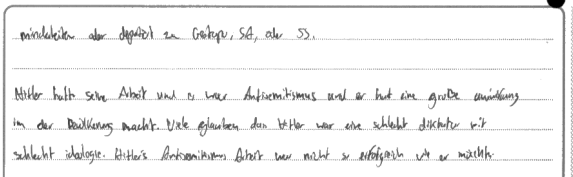 minderheiten oder deportiert zu Gestapo, SA, oder SS.
Hitler hatte seine Arbeit und es war Antisemitismus und er hat eine große
im der Bevölkerung macht. Viele glauben dan Hitler war eine schlecht diktatur mit
schlecht idologie. Hitler's Antisemitismus Arbeit war nicht so erfolgreich wie er möchte